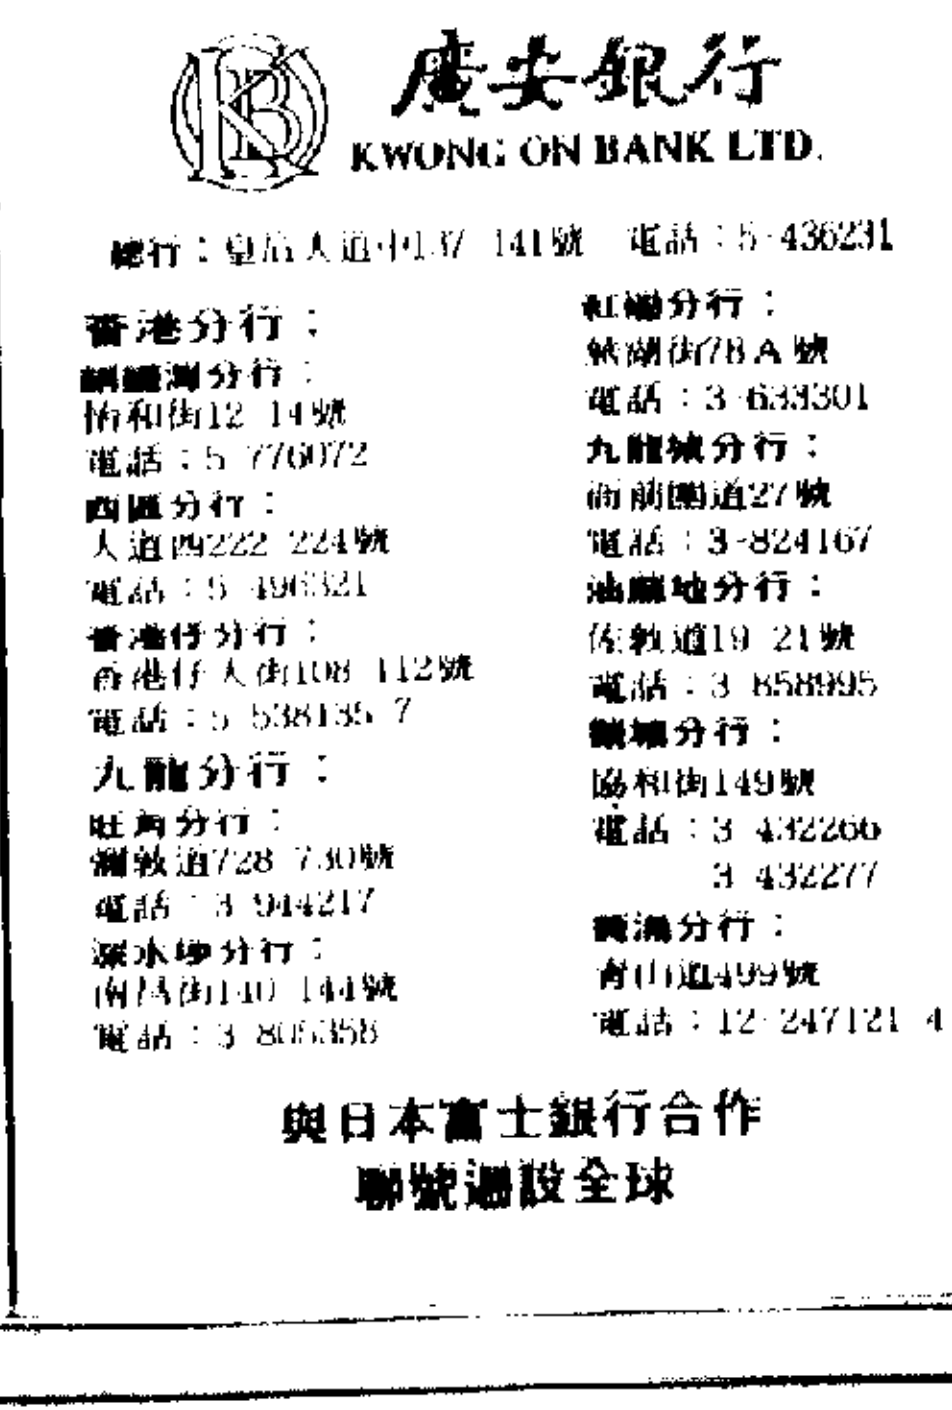 KB
廣安銀行
KWONG ON BANK LTD.
總行：皇后大道中137-141號 電話：5-436231
香港分行：
銅鑼灣分行：
怡和街12-14號
電話：5-776072
西區分行：
大道西222-224號
電話：5-496321
香港仔分行：
香港仔大街108-112號
電話：5-538135-7
九龍分行：
旺角分行：
彌敦道728-730號
電話：3-944217
深水埗分行：
南昌街140-144號
電話：3-805358
紅磡分行：
街78A號
電話：3-633301
九龍城分行：
衙前圍道27號
電話：3-824167
油麻地分行：
佐敦道19-21號
電話：3-858995
觀塘分行：
協和街149號
電話：3-432266
3-432277
荃灣分行：
青山道499號
電話：12-247121-4
與日本富士銀行合作
聯號遍設全球